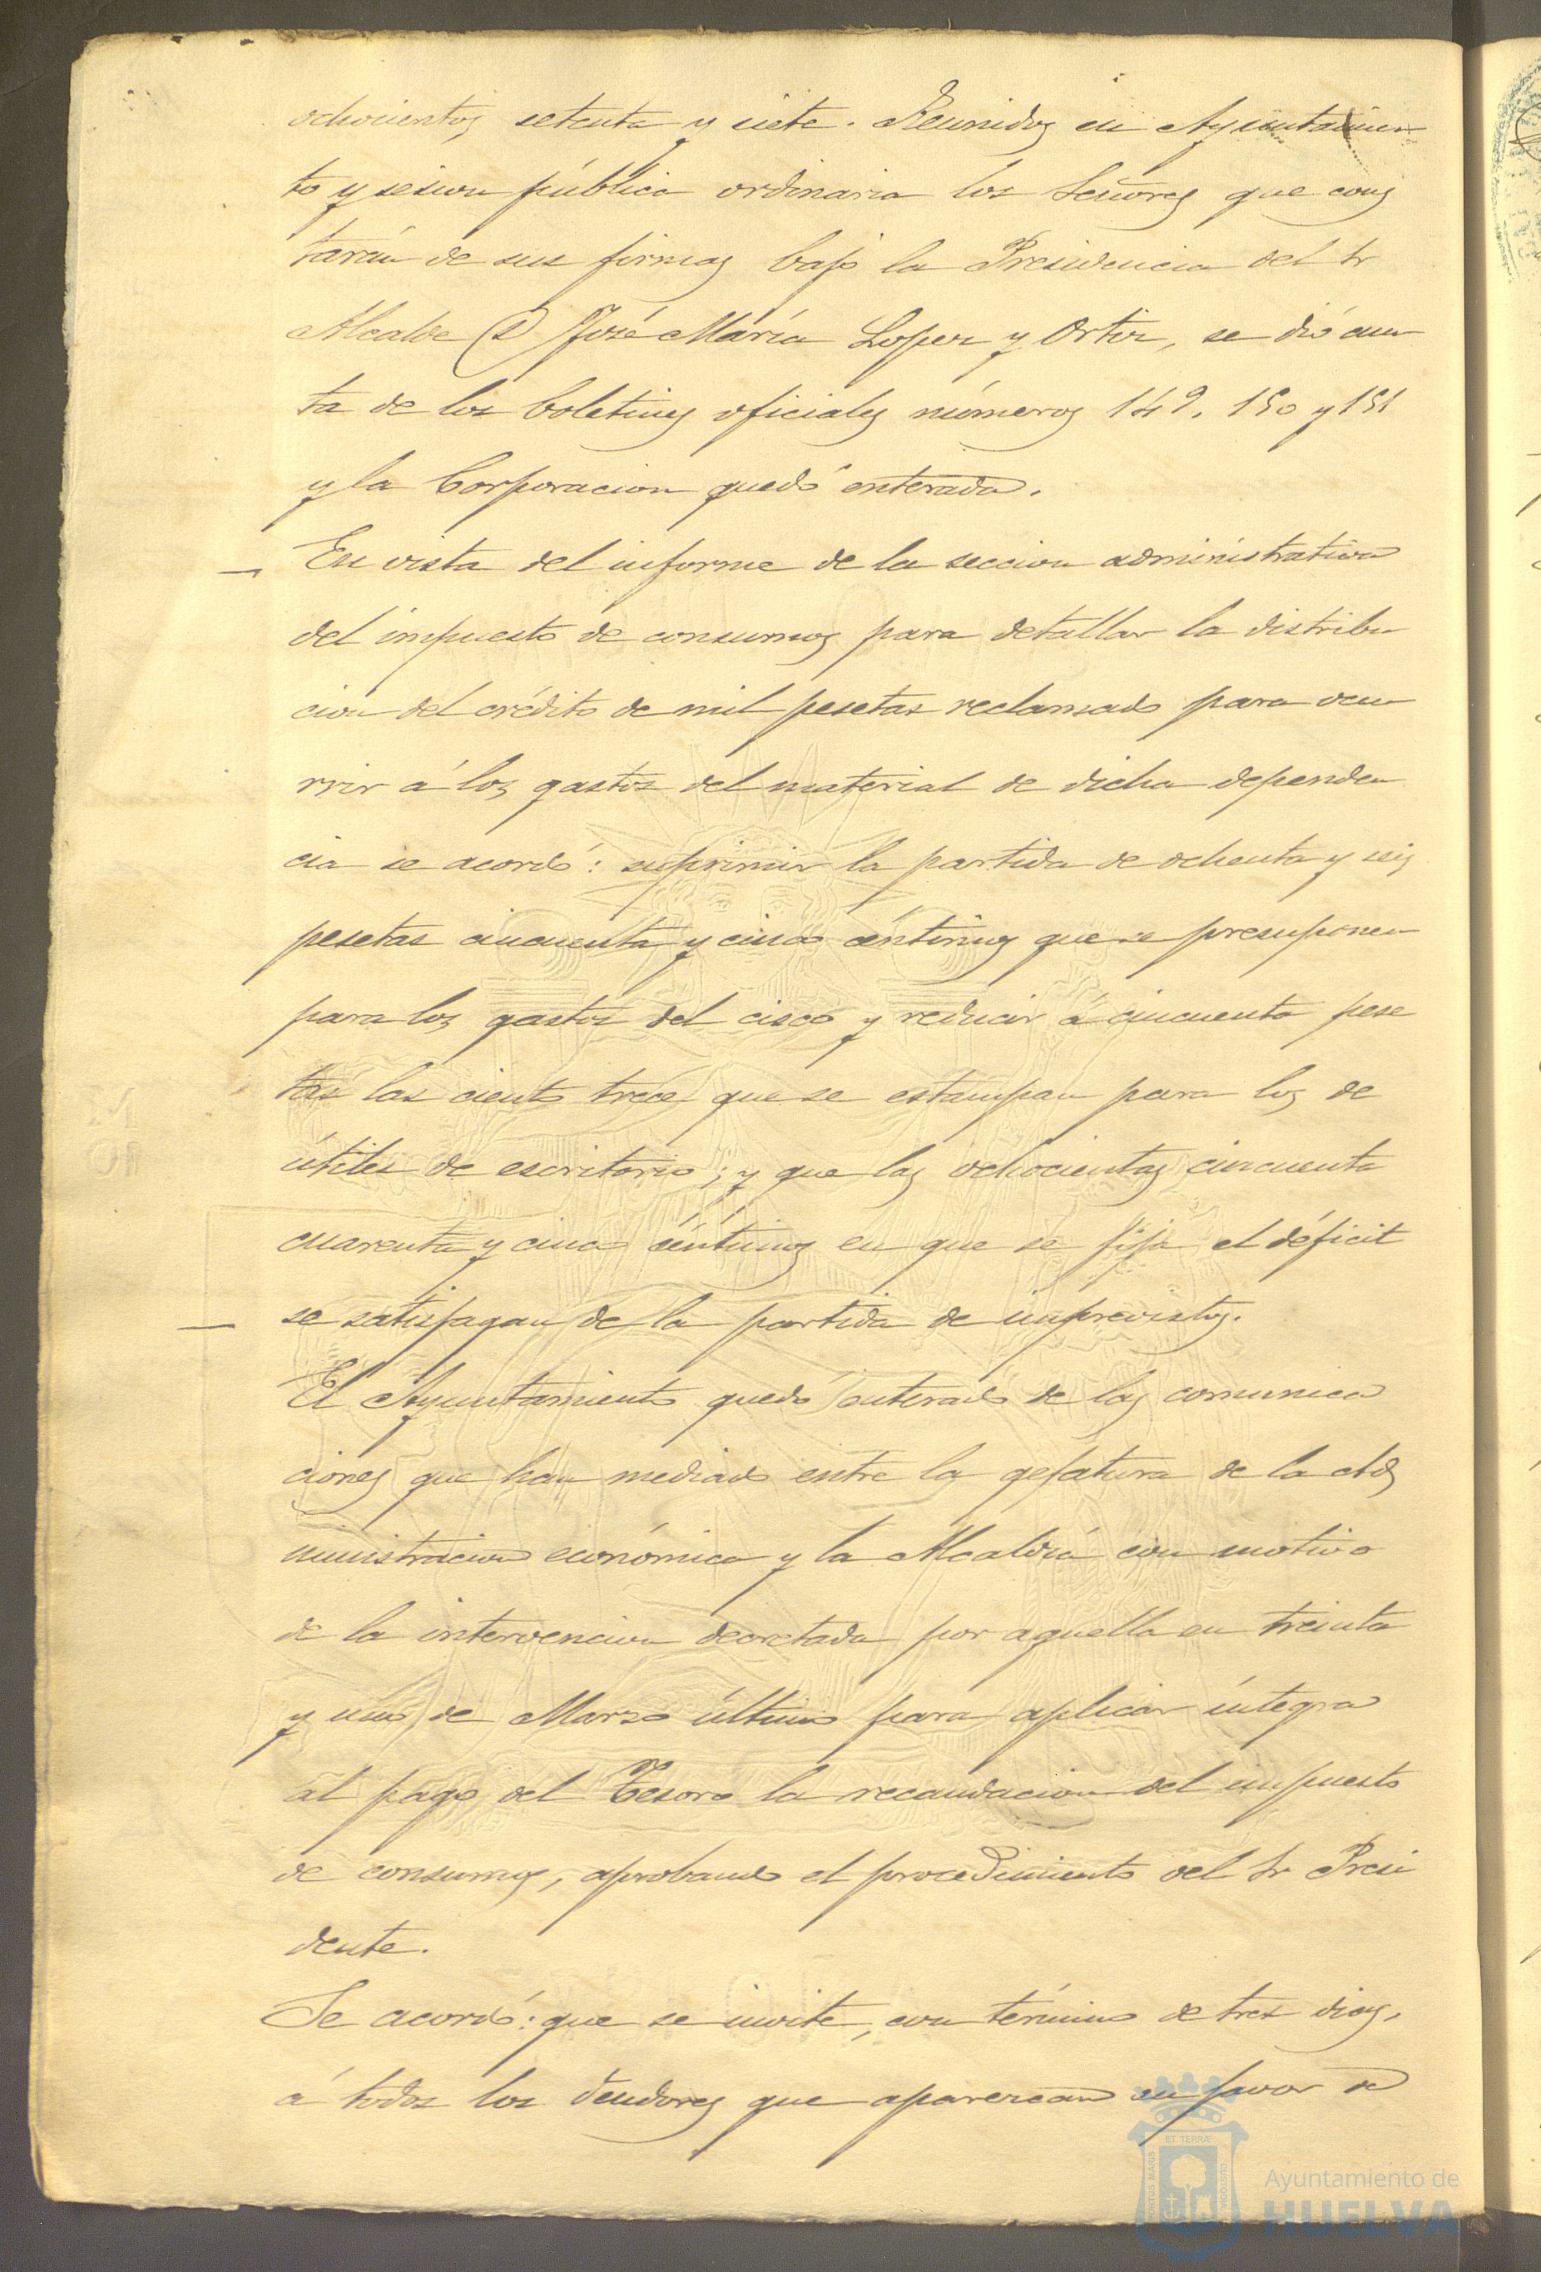 ochocientos setenta y siete. Reunidos en Ayuntamien
to y sesion pública ordinaria los Señores que cons
tarán de sus firmas bajo la Presidencia del Sr
Alcalde D José María Lopez y Ortiz, se dió cuen
ta de los boletines oficiales números 149. 150 y 151
y la Corporacion quedó enterada.
— En vista del informe de la seccion administrativa
del impuesto de consumos para detallar la distribu
cion del crédito de mil pesetas reclamado para ocu
rrir á los gastos del material de dicha dependen
cia se acordó: suprimir la partida de ochenta y seis
pesetas cincuenta y cinco céntimos que se presuponen
para los gastos del cisco y reducir á cincuenta pese
tas las ciento trece que se estampan para los de
útiles de escritorio; y que las ochocientas cincuenta
cuarenta y cinco céntimos en que se fija el déficit
— se satisfagan de la partida de imprevistos.
El Ayuntamiento quedó enterado de las comunica
ciones que han mediado entre la gefatura de la Ad
ministracion económica y la Alcaldía con motivo
de la intervencion decretada por aquella en treinta
y uno de Marzo último para aplicar íntegra
al pago del Tesoro la recaudacion del impuesto
de consumos, aprobando el procedimiento del Sr Presi
dente.
Se acordó: que se invite, con término de tres dias,
á todos los deudores que aparezcan en favor de
Ayuntamiento de
HUELVA